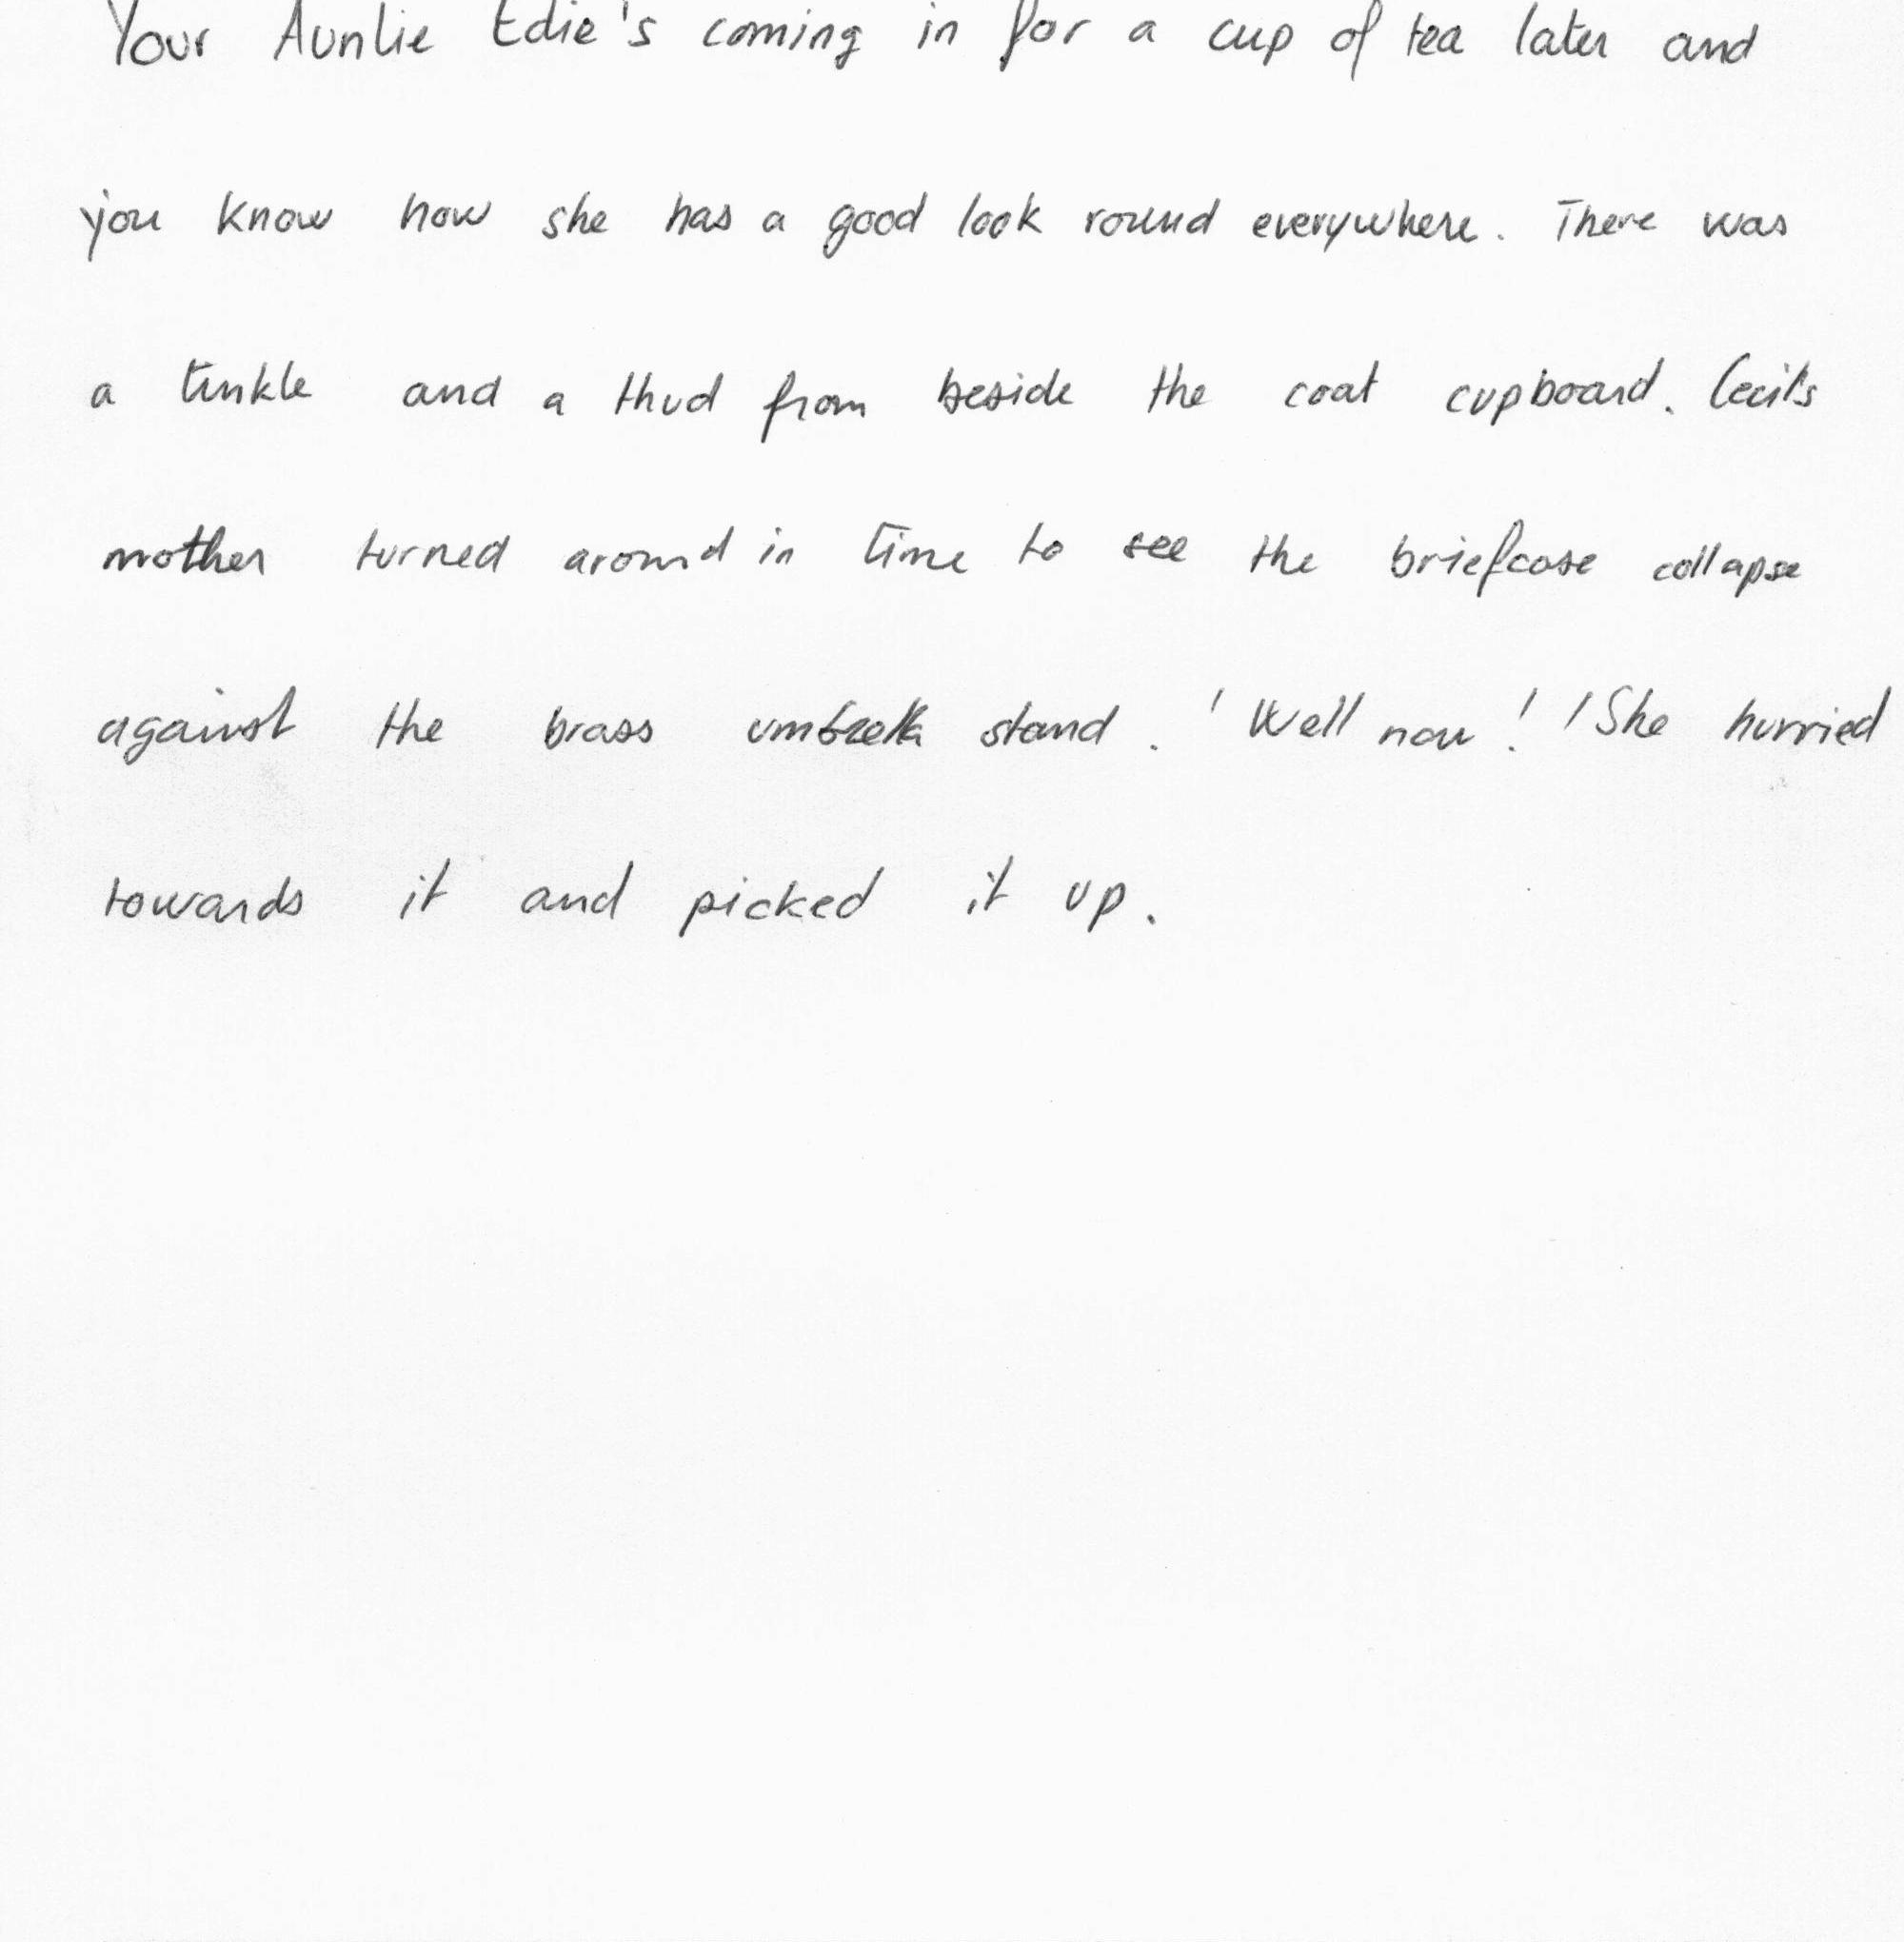 Your Auntie Edie's coming in for a cup of tea later and
you know how she has a good look round everywhere. There was
a tinkle and a thud from beside the coat cupboard. Cecil's
mother turned around in time to see the briefcase collapse
against the brass umbrella stand. 'Well now!' She hurried
towards it and picked it up.